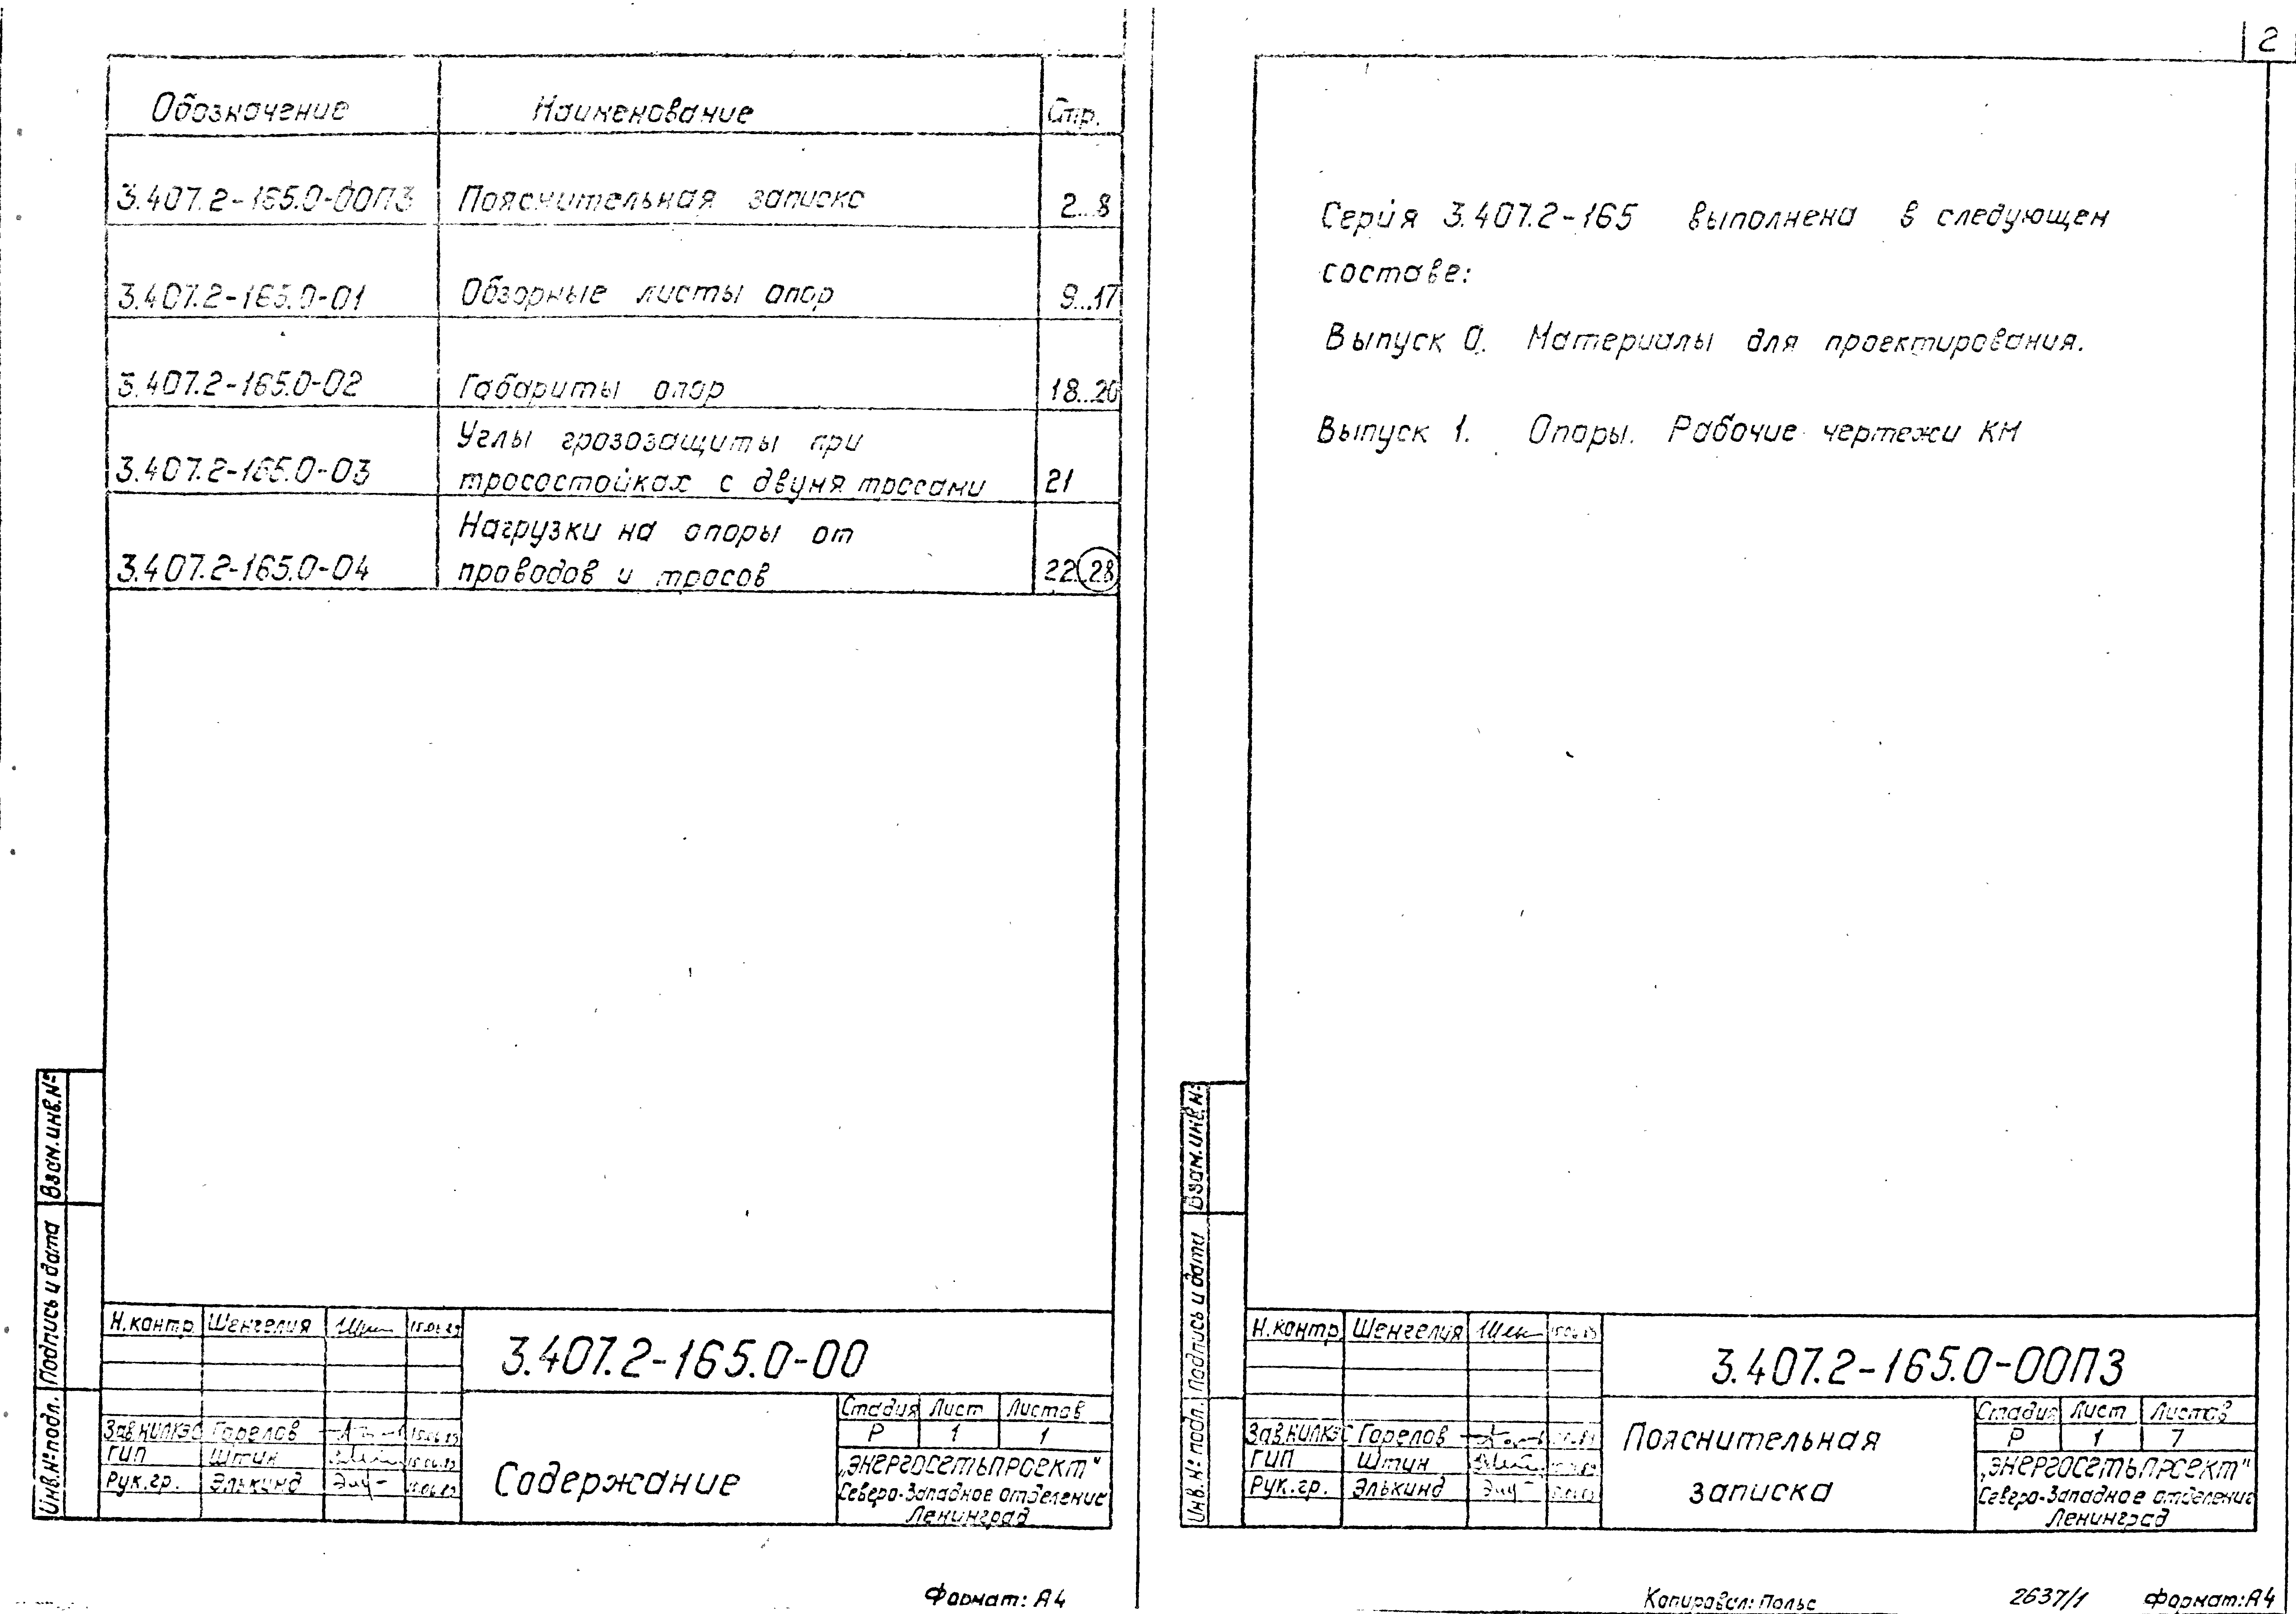 Обозначение Наименование Стр.
3.407.2-165.0-00ПЗ Пояснительная записка 2...8
3.407.2-165.0-01 Обзорные листы опор 9...17
3.407.2-165.0-02 Габариты опор 18...20
3.407.2-165.0-03 Углы грозозащиты при
тросостойках с двумя тросами 21
3.407.2-165.0-04 Нагрузки на опоры от
проводов и тросов 22...28
Взам.инв.№
Подпись и дата
Инв.№подл.
Н.контр. Шенгелия 15.06.89
3.407.2-165.0-00
Зав.НИЛКЭС Горелов 15.06.89
ГИП Штин 15.06.89
Рук.гр. Элькинд 15.06.89
Содержание
Стадия Лист Листов
Р 1 1
„Энергосетьпроект"
Северо-Западное отделение
Ленинград
Формат: А4
2
Серия 3.407.2-165 выполнена в следующем
составе:
Выпуск 0. Материалы для проектирования.
Выпуск 1. Опоры. Рабочие чертежи КМ
Взам.инв.№
Подпись и дата
Инв.№подл.
Н.контр. Шенгелия 15.06.89
3.407.2-165.0-00ПЗ
Зав.НИЛКЭС Горелов
ГИП Штин
Рук.гр. Элькинд
Пояснительная
записка
Стадия Лист Листов
Р 1 7
„Энергосетьпроект"
Северо-Западное отделение
Ленинград
Копировал: Польс 2637/1 Формат: А4